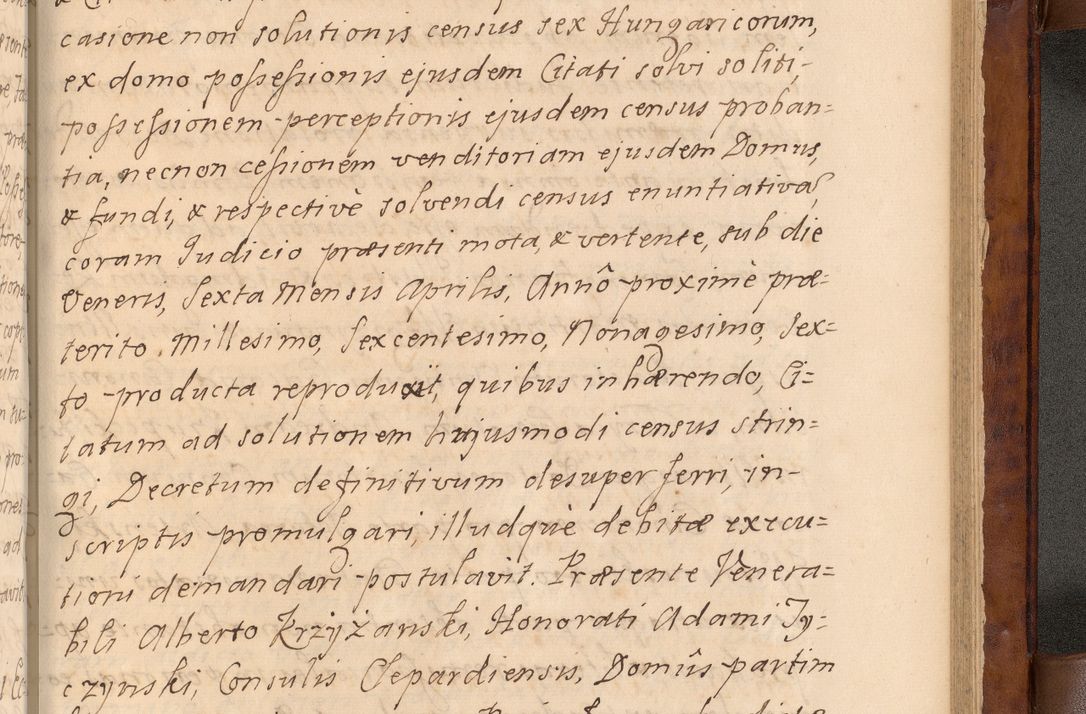 casione non solutionis census sex Hungaricorum,
ex domo possessionis ejusdem Citati solvi soliti,
possessionem perceptionis ejusdem census proban=
tia, necnon cessionem venditoriam ejusdem Domus,
& fundi, & respectivè solvendi census enuntiativa,
coram Judicio præsenti mota, & vertente, sub die
Veneris, Sexta Mensis Aprilis, Annô proximè præ=
terito Millesimo, Sexcentesimo, Nonagesimo, Sex=
to producta reproduxit, quibus inhærendo, Ci=
tatum ad solutionem hujusmodi census strin=
gi, Decretum definitivum desuper ferri, in-
scriptis promulgari, illudquè debitæ execu=
tioni demandari postulavit. Præsente Venera=
bili Alberto Krzyżanski, Honorati Adami Ty=
czynski, Consulis Clepardiensis, Domûs partim